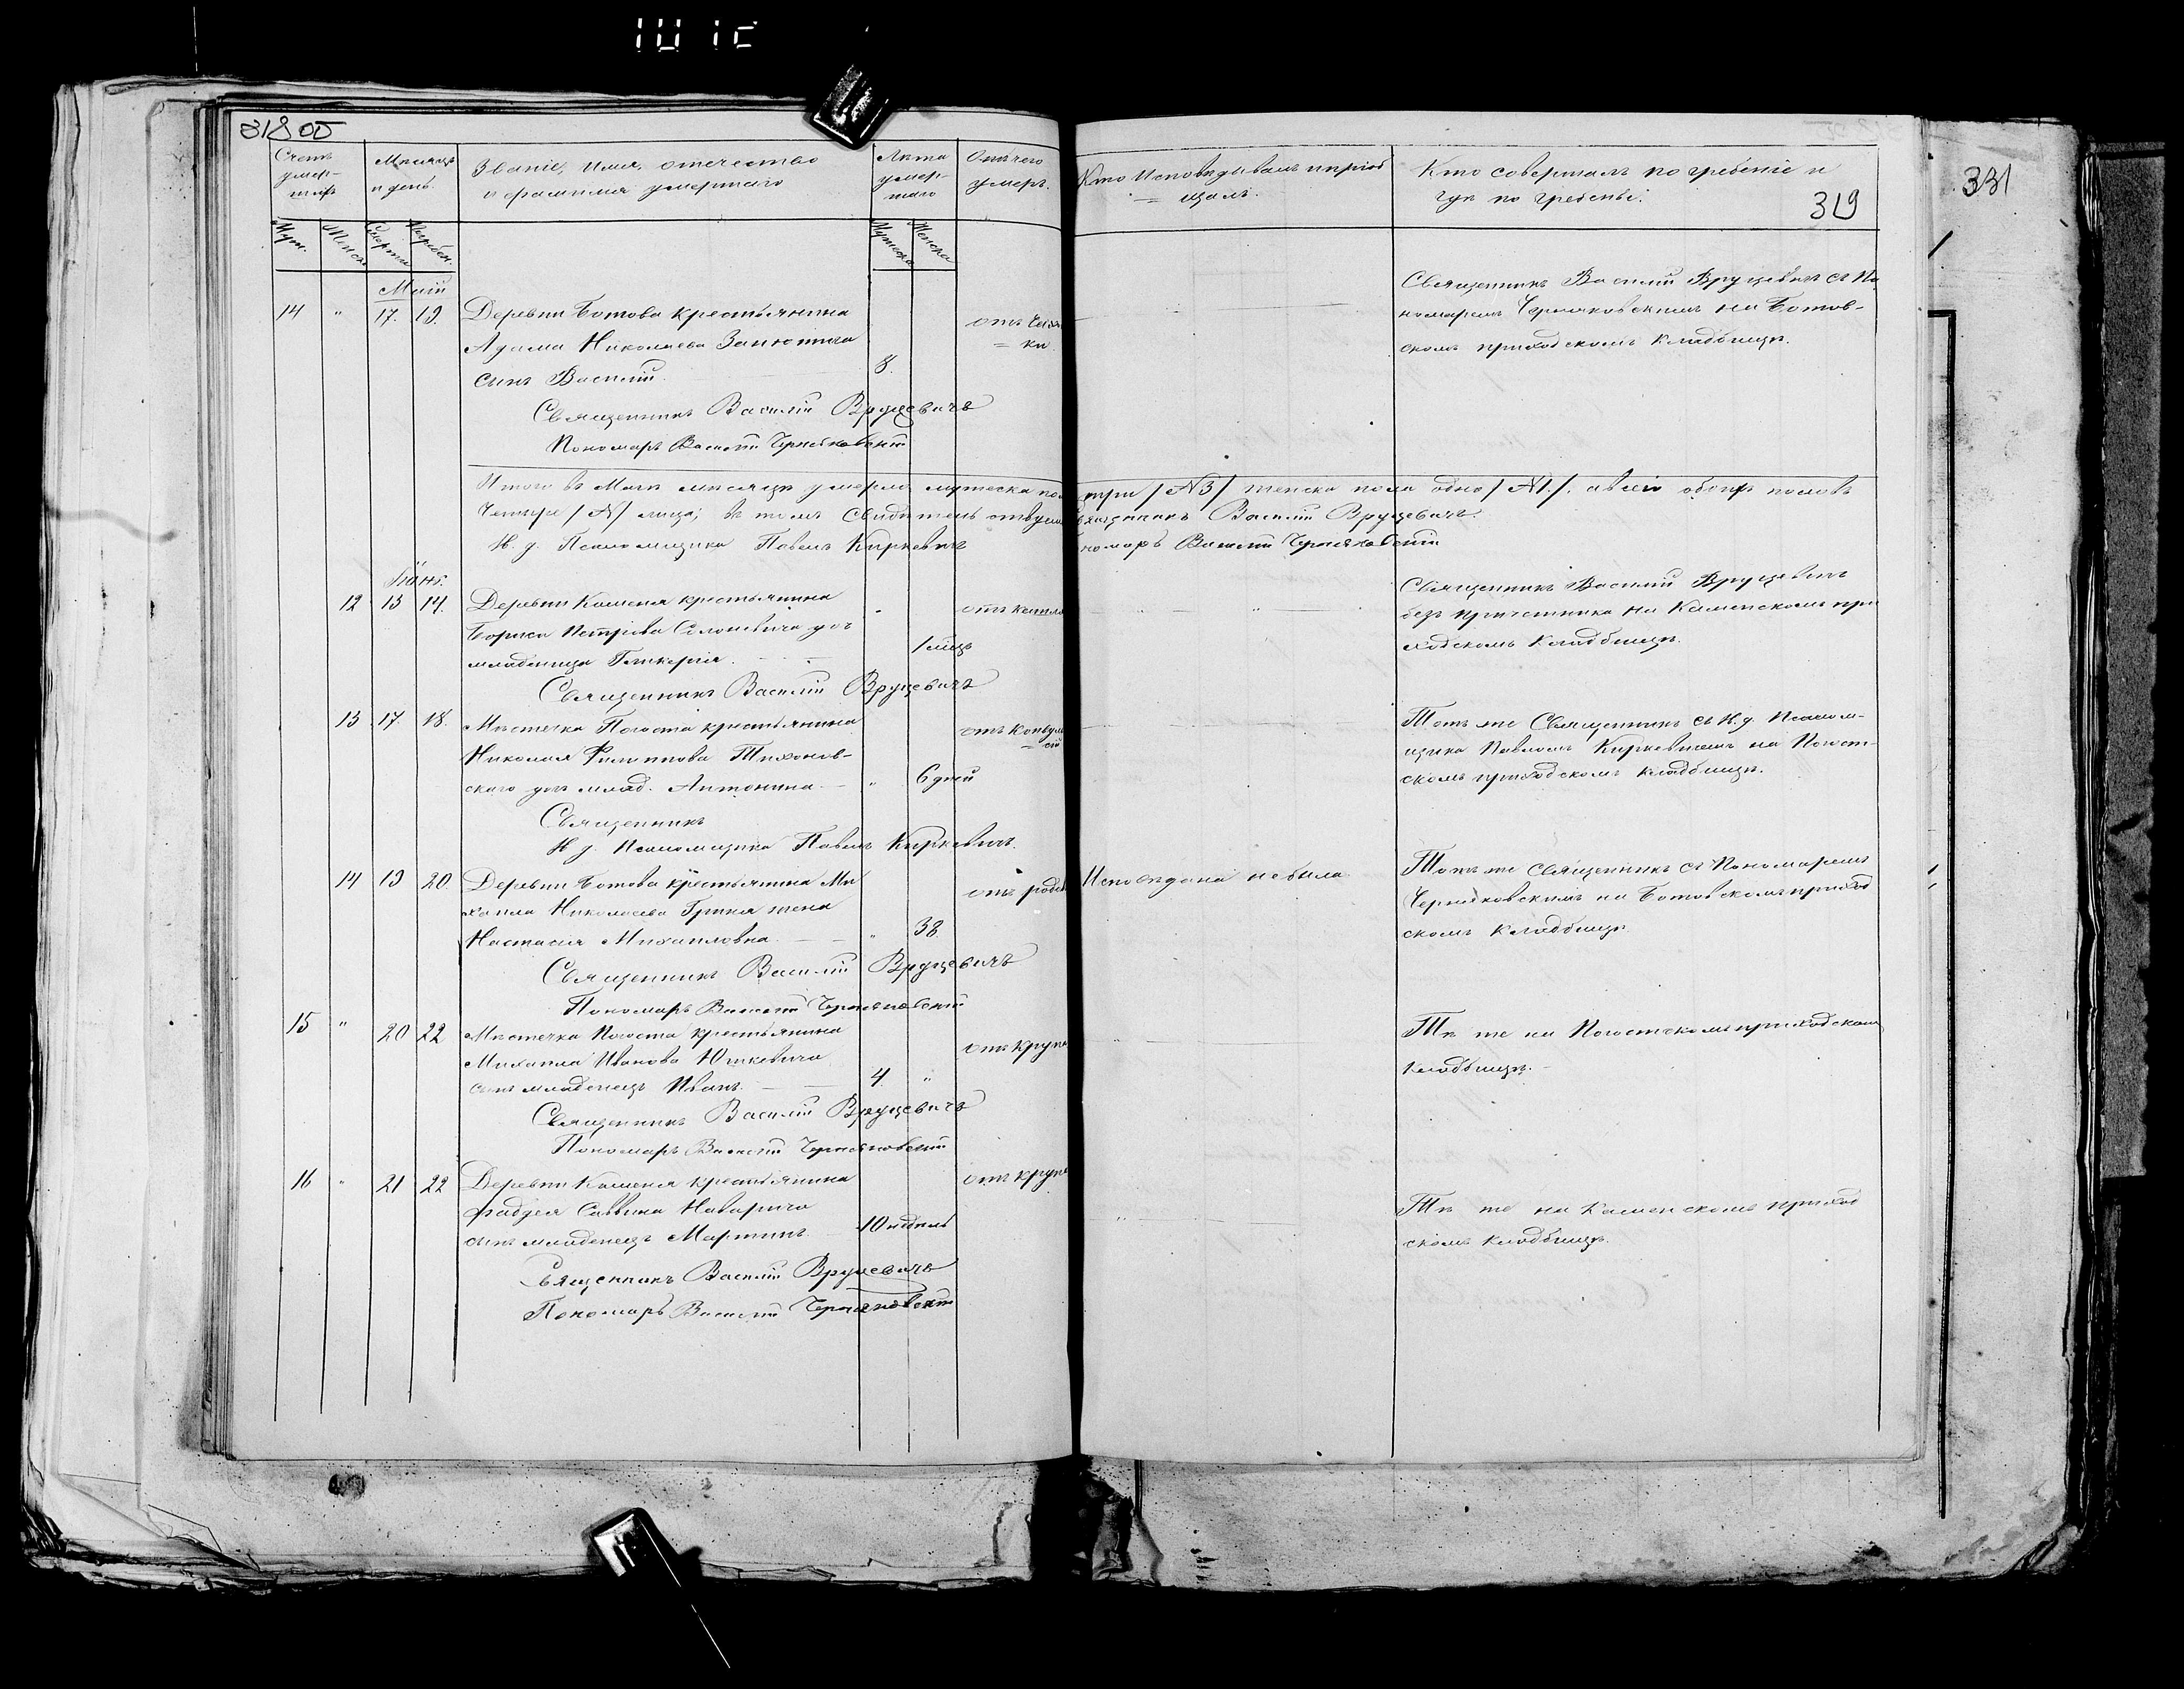 318 об
331
319
Счетъ умер-шихъ
Мѣсяцъ и день.
Званіе, имя, отечество и фамилія умершаго
Лѣта умер-шаго
Отъ чего умеръ.
Кто исповѣдывалъ и пріоб=щалъ.
Кто совершалъ погребеніе и гдѣ погребены.
Муж. Женск. Смерти Погребен.
Мужеска Женска
Май
14 " 17. 19. Деревни Ботова крестьянина
Адама Николаева
сынъ Василій. 8.
Священникъ Василій Вруцевичъ
Пономарь Василій Черняковскій
Священникъ Василій Вруцевичъ съ По
номаремъ Черняковскимъ на Ботов-
скомъ приходскомъ кладбищѣ.
Итого въ Маѣ мѣсяцѣ умерло мужеска пола три /№3/ женска пола одно /№1./, а всего обоихъ половъ
четыре /№/ лица; въ томъ Священникъ Василій Вруцевичъ.
И. д. Псаломщика Павелъ Киркевичъ
Пономарь Василій Черняковскій
Іюнь.
12 13 14. Деревни Каменя крестьянина
Бориса Петрова дочь
младеница Гликерія. 1 мѣсц
отъ кашля
Священникъ Василій Вруцевичъ
Священникъ Василій Вруцевичъ
безъ причетника на Каменскомъ при
ходскомъ кладбищѣ.
13 17. 18. Мѣстечка Погоста крестьянина
Николая Филиппова Тихонов-
скаго дочь млад. Антонина. " 6 дней
отъ конвуль=сій
Священникъ
И. д. Псаломщика Павелъ Киркевичъ.
Тотъ же Священникъ съ И. д. Псалом-
щика Павломъ Киркевичемъ на Погост-
скомъ приходскомъ кладбищѣ.
14 19 20. Деревни Ботова крестьянина Ми
хаила Николаева Гриня жена
Настасія Михайловна. " 38
отъ родов
Исповѣдана небыла
Священникъ Василій Вруцевичъ
Пономарь Василій Черняковскій
Тотъ же Священникъ съ Пономаремъ
Черняковскимъ на Ботовскомъ приход
скомъ кладбищѣ.
15 " 20 22 Мѣстечка Погоста крестьянина
Михаила Иванова Юшкевича
сынъ младенецъ Иванъ. 4. "
отъ крупа
Священникъ Василій Вруцевичъ
Пономарь Василій Черняковскій
Тѣ же на Погостскомъ приходскомъ
кладбищѣ.
16 " 21 22 Деревни Каменя крестьянина
Фаддея Саввина Наварича
сынъ младенецъ Мартинъ. 10 недѣль
отъ крупа
Священникъ Василій Вруцевичъ
Пономарь Василій Черняковскій
Тѣ же на Каменскомъ приход
скомъ кладбищѣ.